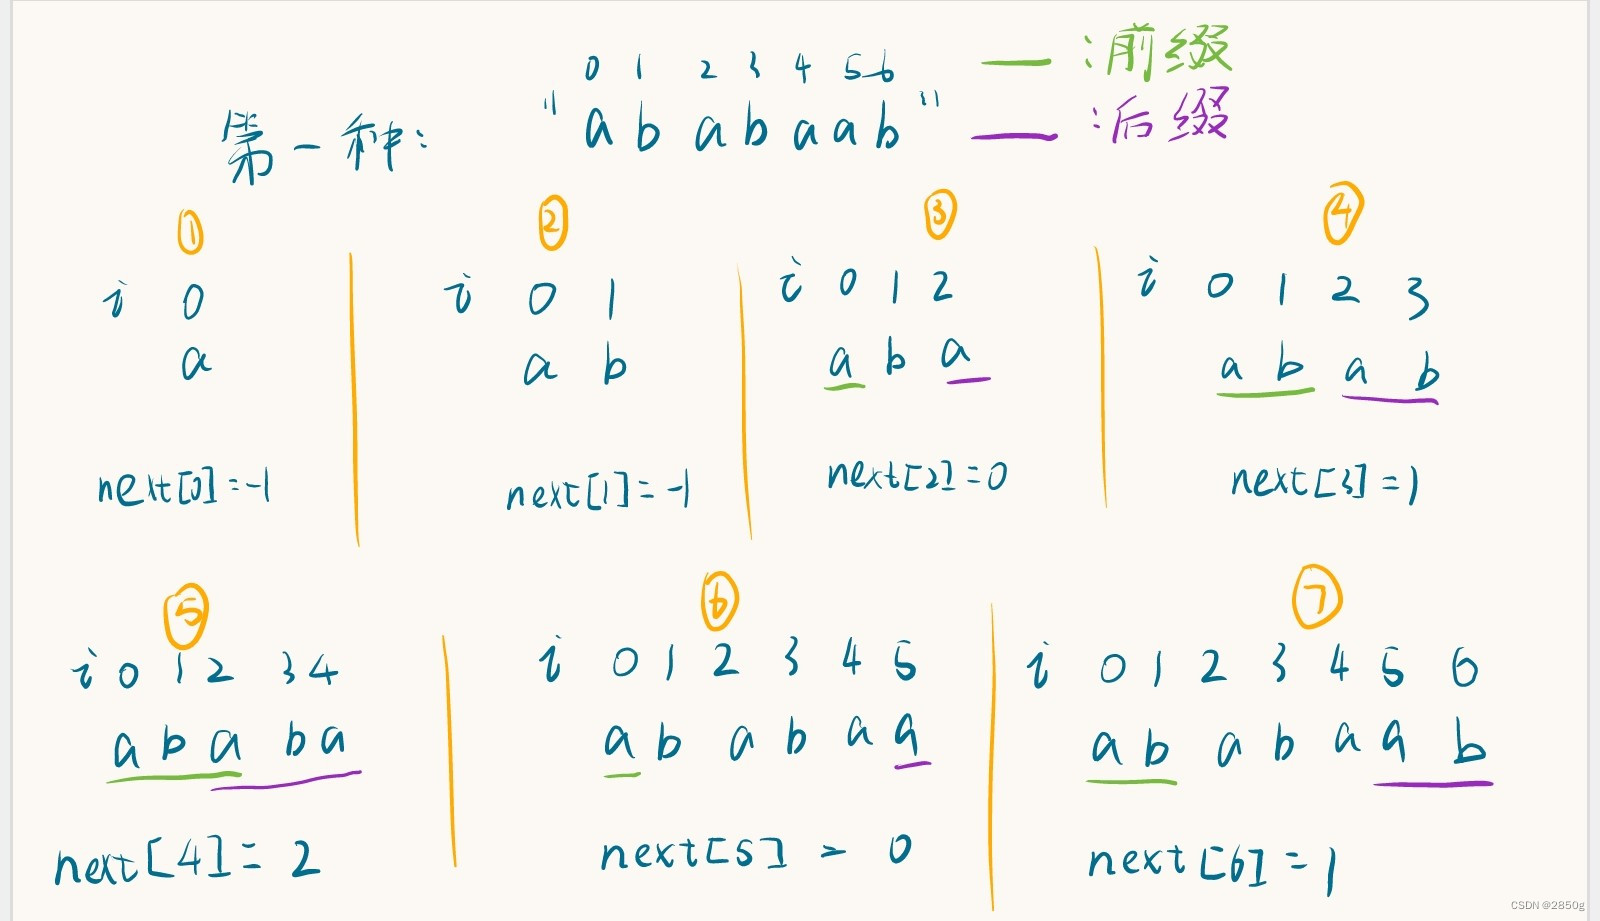 0 1 2 3 4 5 6 — :前缀
第一种: "a b a b a a b" — :后缀
① ② ③ ④
i 0
a
next[0]=-1
i 0 1
a b
next[1]=-1
i 0 1 2
a b a
next[2]=0
i 0 1 2 3
a b a b
next[3]=1
⑤ ⑥ ⑦
i 0 1 2 3 4
a b a b a
next[4]=2
i 0 1 2 3 4 5
a b a b a a
next[5]=0
i 0 1 2 3 4 5 6
a b a b a a b
next[6]=1
CSDN @2850g